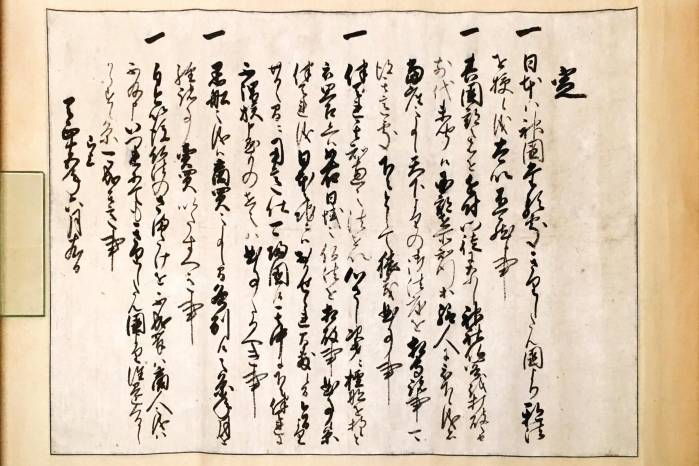 定
一 日本ハ神國たる處きりしたん國より邪法
を授候儀太以不可然候事
一 其國郡之者を近付門徒になし神社仏閣を打破之由
前代未聞候國郡在所知行等給人に被下候儀者
當座之事候天下よりの御法度を相守諸事可
得其意處下々として猥義曲事事
一 伴天連其知恵之法を以心さし次第ニ檀那を持候と
被思召候ヘハ如右日域之仏法を相破事曲事候条
伴天連儀日本之地ニハおかせられ間敷候間今日より廿日之
間ニ用意仕可帰國候其中に下々伴天連に
不謂族申懸もの在之ハ曲事たるへき事
一 黒船之儀ハ商買之事候間各別候之条年月を
経諸事賣買いたすへき事
一 自今以後仏法のさまたけを不成輩ハ商人之儀ハ
不及申いつれにてもきりしたん國より往還
くるしからす候条可成其意事
已上
天正十五年六月十九日